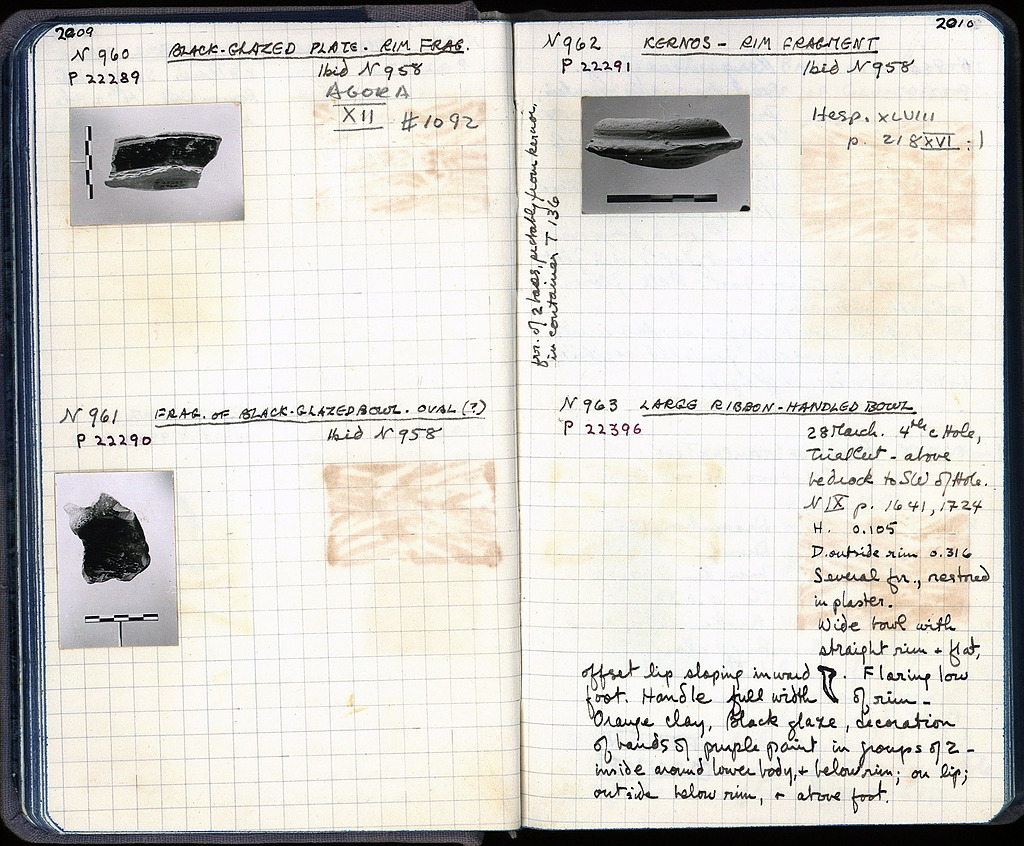 2009
N 960 BLACK-GLAZED PLATE. RIM FRAG.
P 22289 Ibid N 958
AGORA
XII #1092
N 961 FRAG. OF BLACK-GLAZED BOWL. OVAL (?)
P 22290 Ibid N 958
2010
N 962 KERNOS - RIM FRAGMENT
P 22291 Ibid N 958
Hesp. XLVIII
p. 218 XVI : 1
frr. of 2 bases, probably from kernoi,
in container T 136
N 963 LARGE RIBBON-HANDLED BOWL
P 22396 28 March. 4th c Hole,
Trial Cut - above
bedrock to SW of Hole.
N IX p. 1641, 1724
H. 0.105
D. outside rim 0.316
Several frr., restored
in plaster.
Wide bowl with
straight rim + flat,
offset lip sloping inward . Flaring low
foot. Handle full width of rim -
Orange clay, Black glaze, decoration
of bands of purple paint in groups of 2 -
inside around lower body, + below rim; on lip;
outside below rim, + above foot.